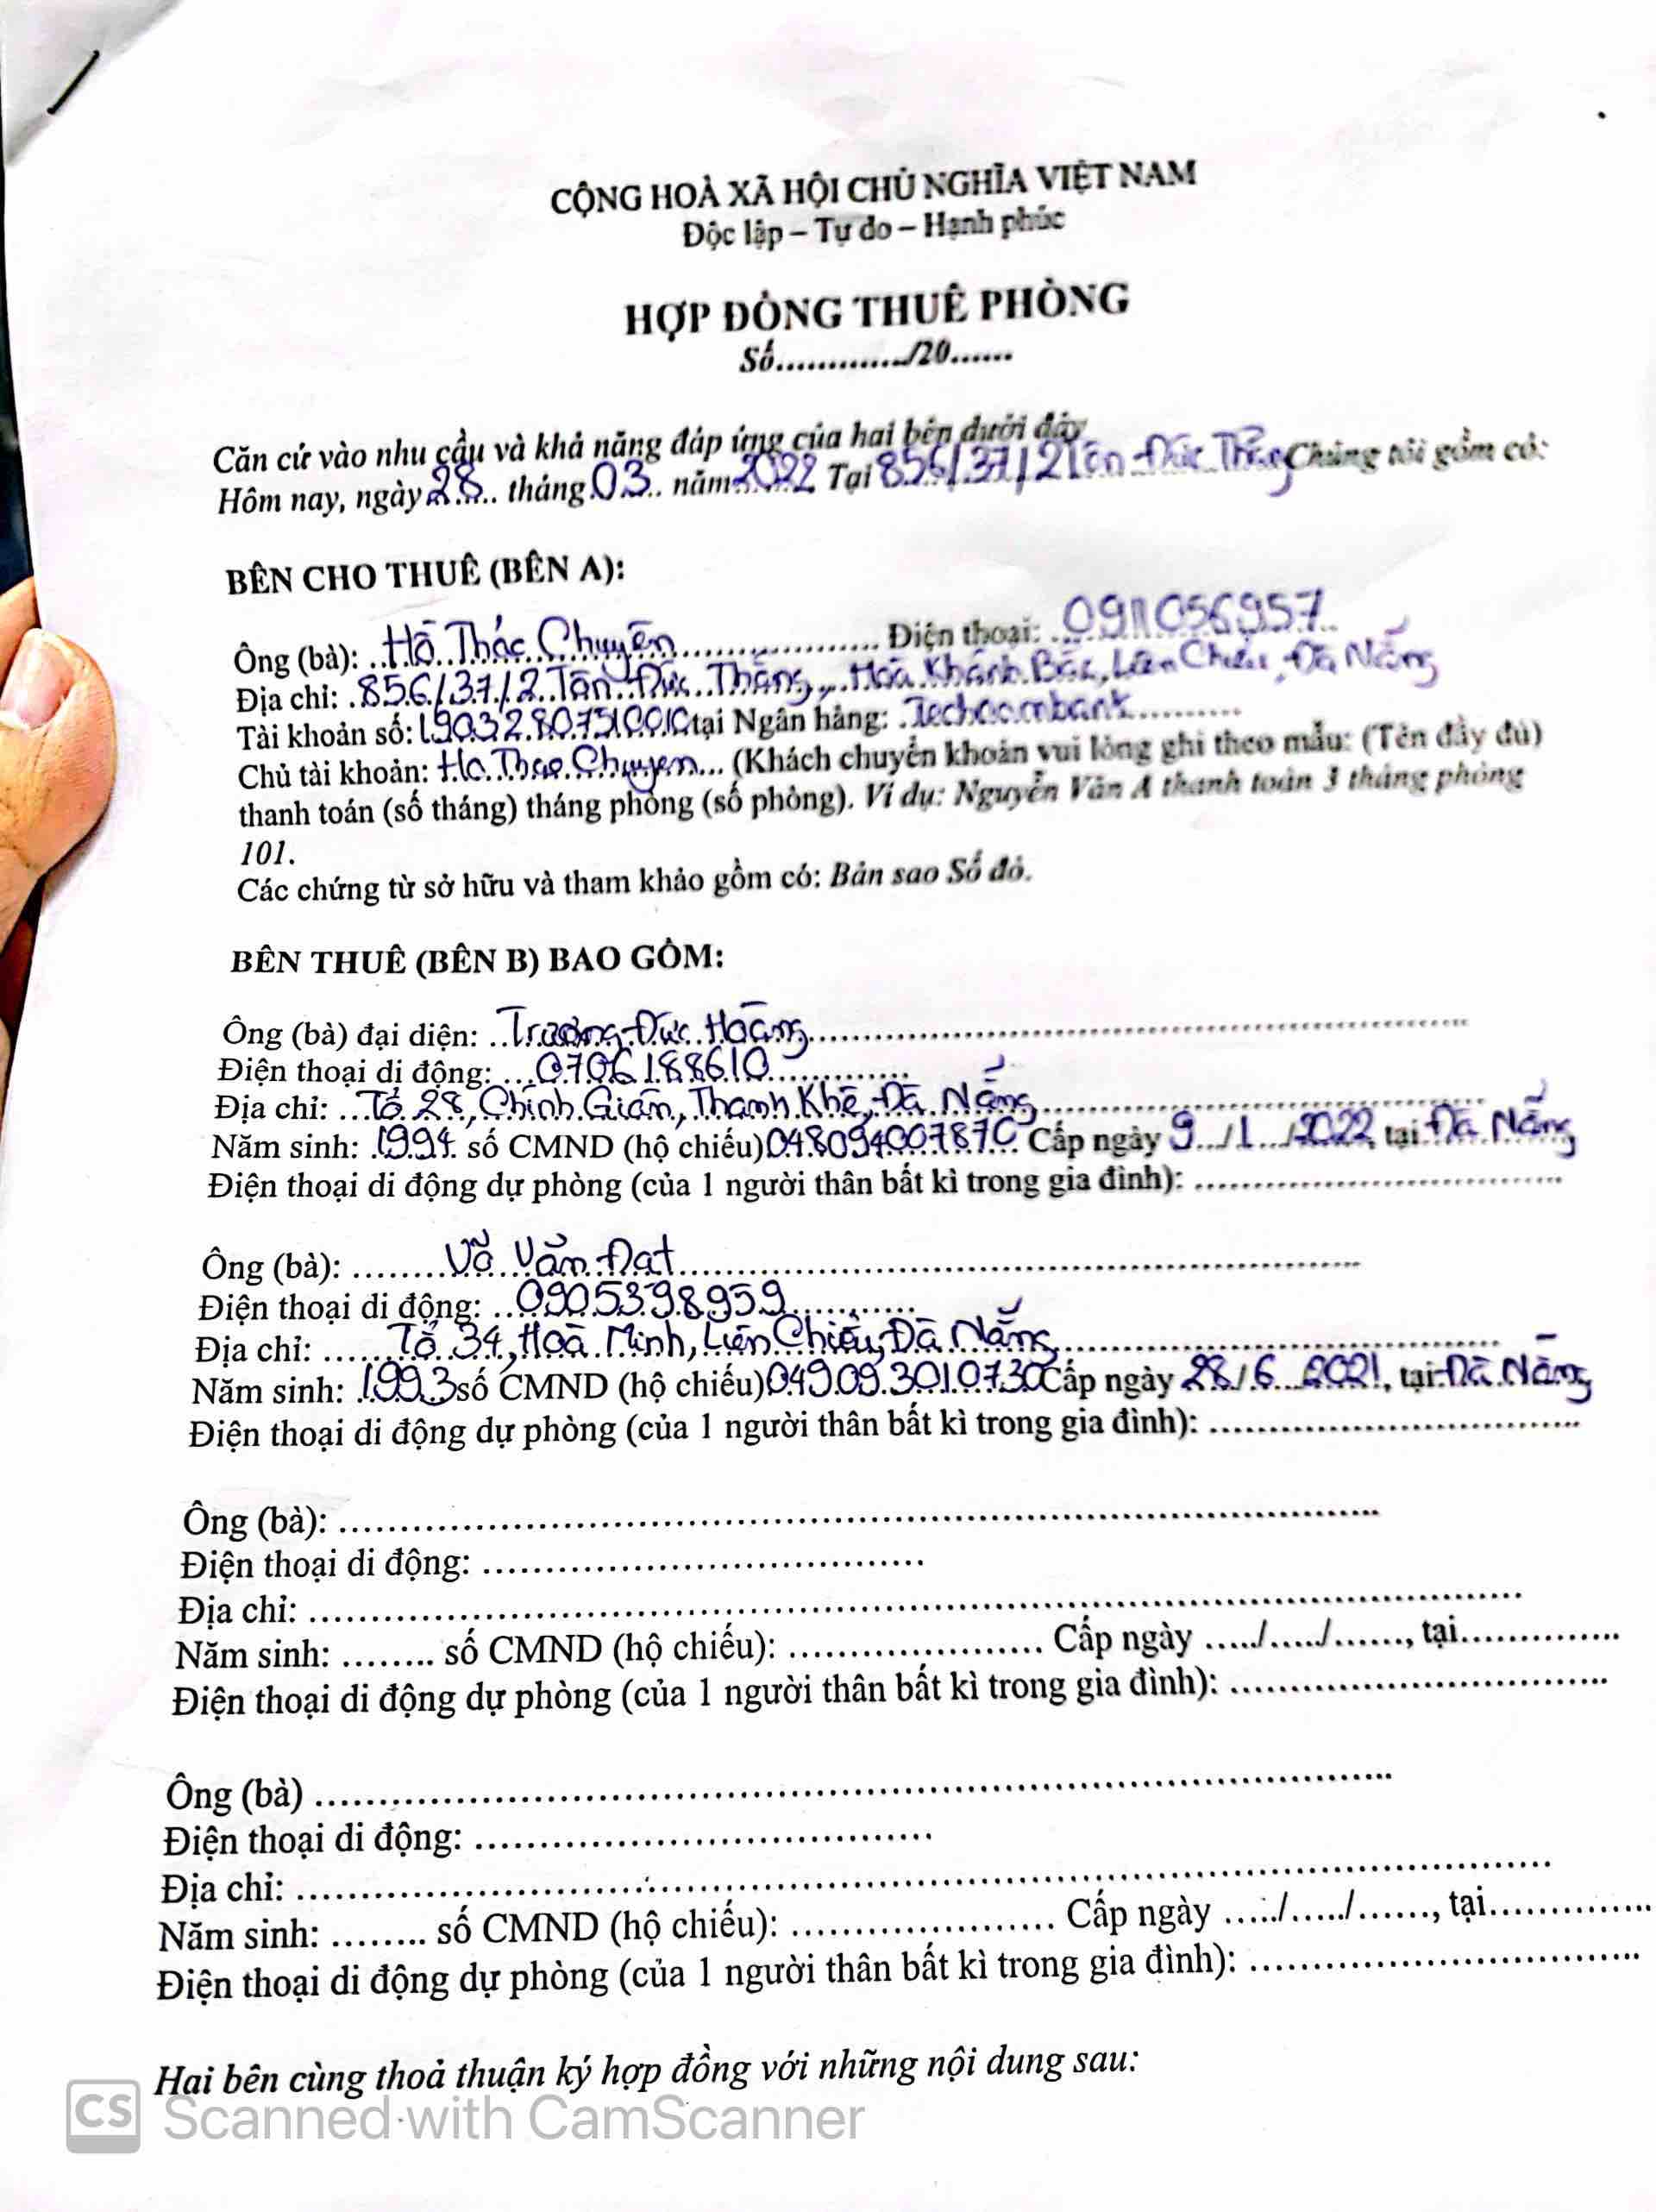 CỘNG HOÀ XÃ HỘI CHỦ NGHĨA VIỆT NAM
Độc lập – Tự do – Hạnh phúc
HỢP ĐỒNG THUÊ PHÒNG
Số............./20......
Căn cứ vào nhu cầu và khả năng đáp ứng của hai bên dưới đây
Hôm nay, ngày 28 tháng 03 năm 2022 Tại 856/37/2 Tôn Đức Thắng Chúng tôi gồm có:
BÊN CHO THUÊ (BÊN A):
Ông (bà): Hồ Thác Chuyên Điện thoại: 0911056957
Địa chỉ: 856/37/2 Tôn Đức Thắng, Hoà Khánh Bắc, Liên Chiểu, Đà Nẵng
Tài khoản số: tại Ngân hàng: Techcombank
Chủ tài khoản: Ho Thac Chuyen (Khách chuyển khoản vui lòng ghi theo mẫu: (Tên đầy đủ)
thanh toán (số tháng) tháng phòng (số phòng). Ví dụ: Nguyễn Văn A thanh toán 3 tháng phòng
101.
Các chứng từ sở hữu và tham khảo gồm có: Bản sao Sổ đỏ.
BÊN THUÊ (BÊN B) BAO GỒM:
Ông (bà) đại diện: Trương Đức Hoàng
Điện thoại di động: 0706188610
Địa chỉ: Tổ 28, Chính Gián, Thanh Khê, Đà Nẵng
Năm sinh: 1994 số CMND (hộ chiếu) 048094007870 Cấp ngày 9/1/2022, tại Đà Nẵng
Điện thoại di động dự phòng (của 1 người thân bất kì trong gia đình): ..............................
Ông (bà): Võ Văn Đạt
Điện thoại di động: 0905398959
Địa chỉ: Tổ 34, Hoà Minh, Liên Chiểu, Đà Nẵng
Năm sinh: 1993 số CMND (hộ chiếu) 049093010730 Cấp ngày 28/6 2021, tại Đà Nẵng
Điện thoại di động dự phòng (của 1 người thân bất kì trong gia đình): ..............................
Ông (bà): ..............................
Điện thoại di động: ..............................
Địa chỉ: ..............................
Năm sinh: ........ số CMND (hộ chiếu): ..................... Cấp ngày ...../...../......, tại..............
Điện thoại di động dự phòng (của 1 người thân bất kì trong gia đình): ..............................
Ông (bà) ..............................
Điện thoại di động: ..............................
Địa chỉ: ..............................
Năm sinh: ........ số CMND (hộ chiếu): ..................... Cấp ngày ...../...../......, tại..............
Điện thoại di động dự phòng (của 1 người thân bất kì trong gia đình): ..............................
Hai bên cùng thoả thuận ký hợp đồng với những nội dung sau:
CS Scanned with CamScanner